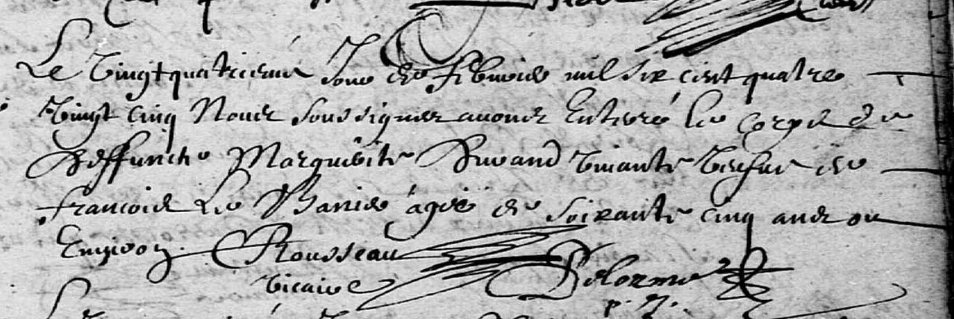 Le Vingtquatrieme Jour de febvrier mil six cent quatre
Vingt cinq Nous soussignez avons Enterré le corps de
Deffuncte Marguerite Durand vivante vefve de
francois Le agée de soixante cinq ans ou
Environ Rousseau
vicaire Delorme
p. r.